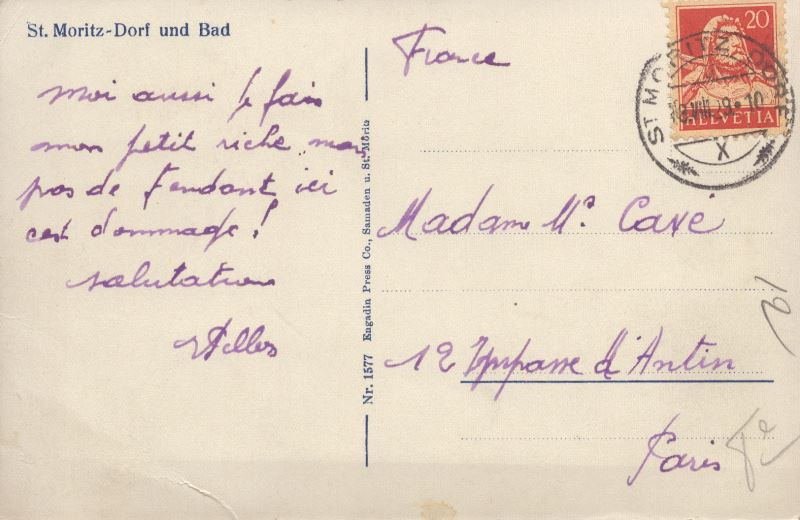 St. Moritz-Dorf und Bad
moi aussi je fais
mon petit riche mais
pas de Fendant ici
c'est dommage!
salutations
Nr. 1577 Engadin Press Co., Samaden u. St. Moritz
France
20
HELVETIA
ST MORITZ DORF
X
Madame Mce Cavé
12 Impasse d'Antin
Paris